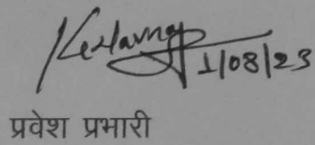 1/08/23
प्रवेश प्रभारी